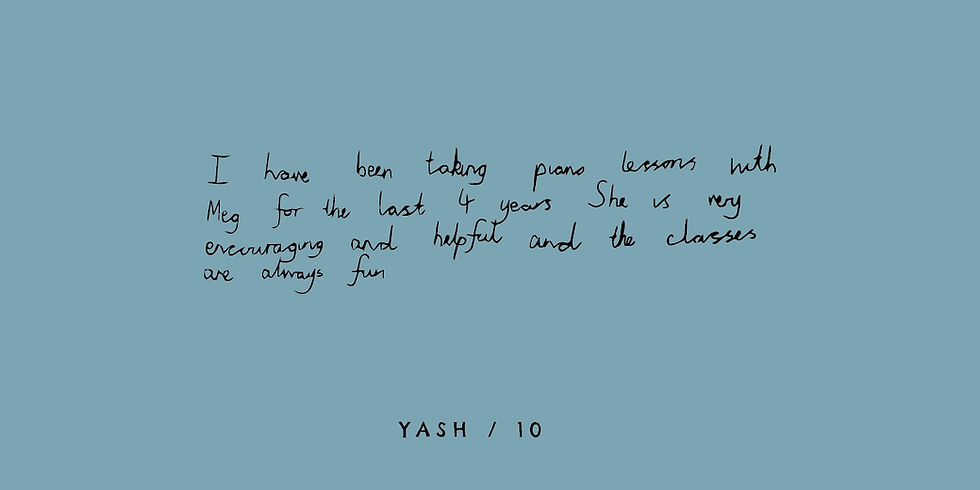 I have been taking piano lessons with
Meg for the last 4 years She is very
encouraging and helpful and the classes
are always fun
YASH / 10